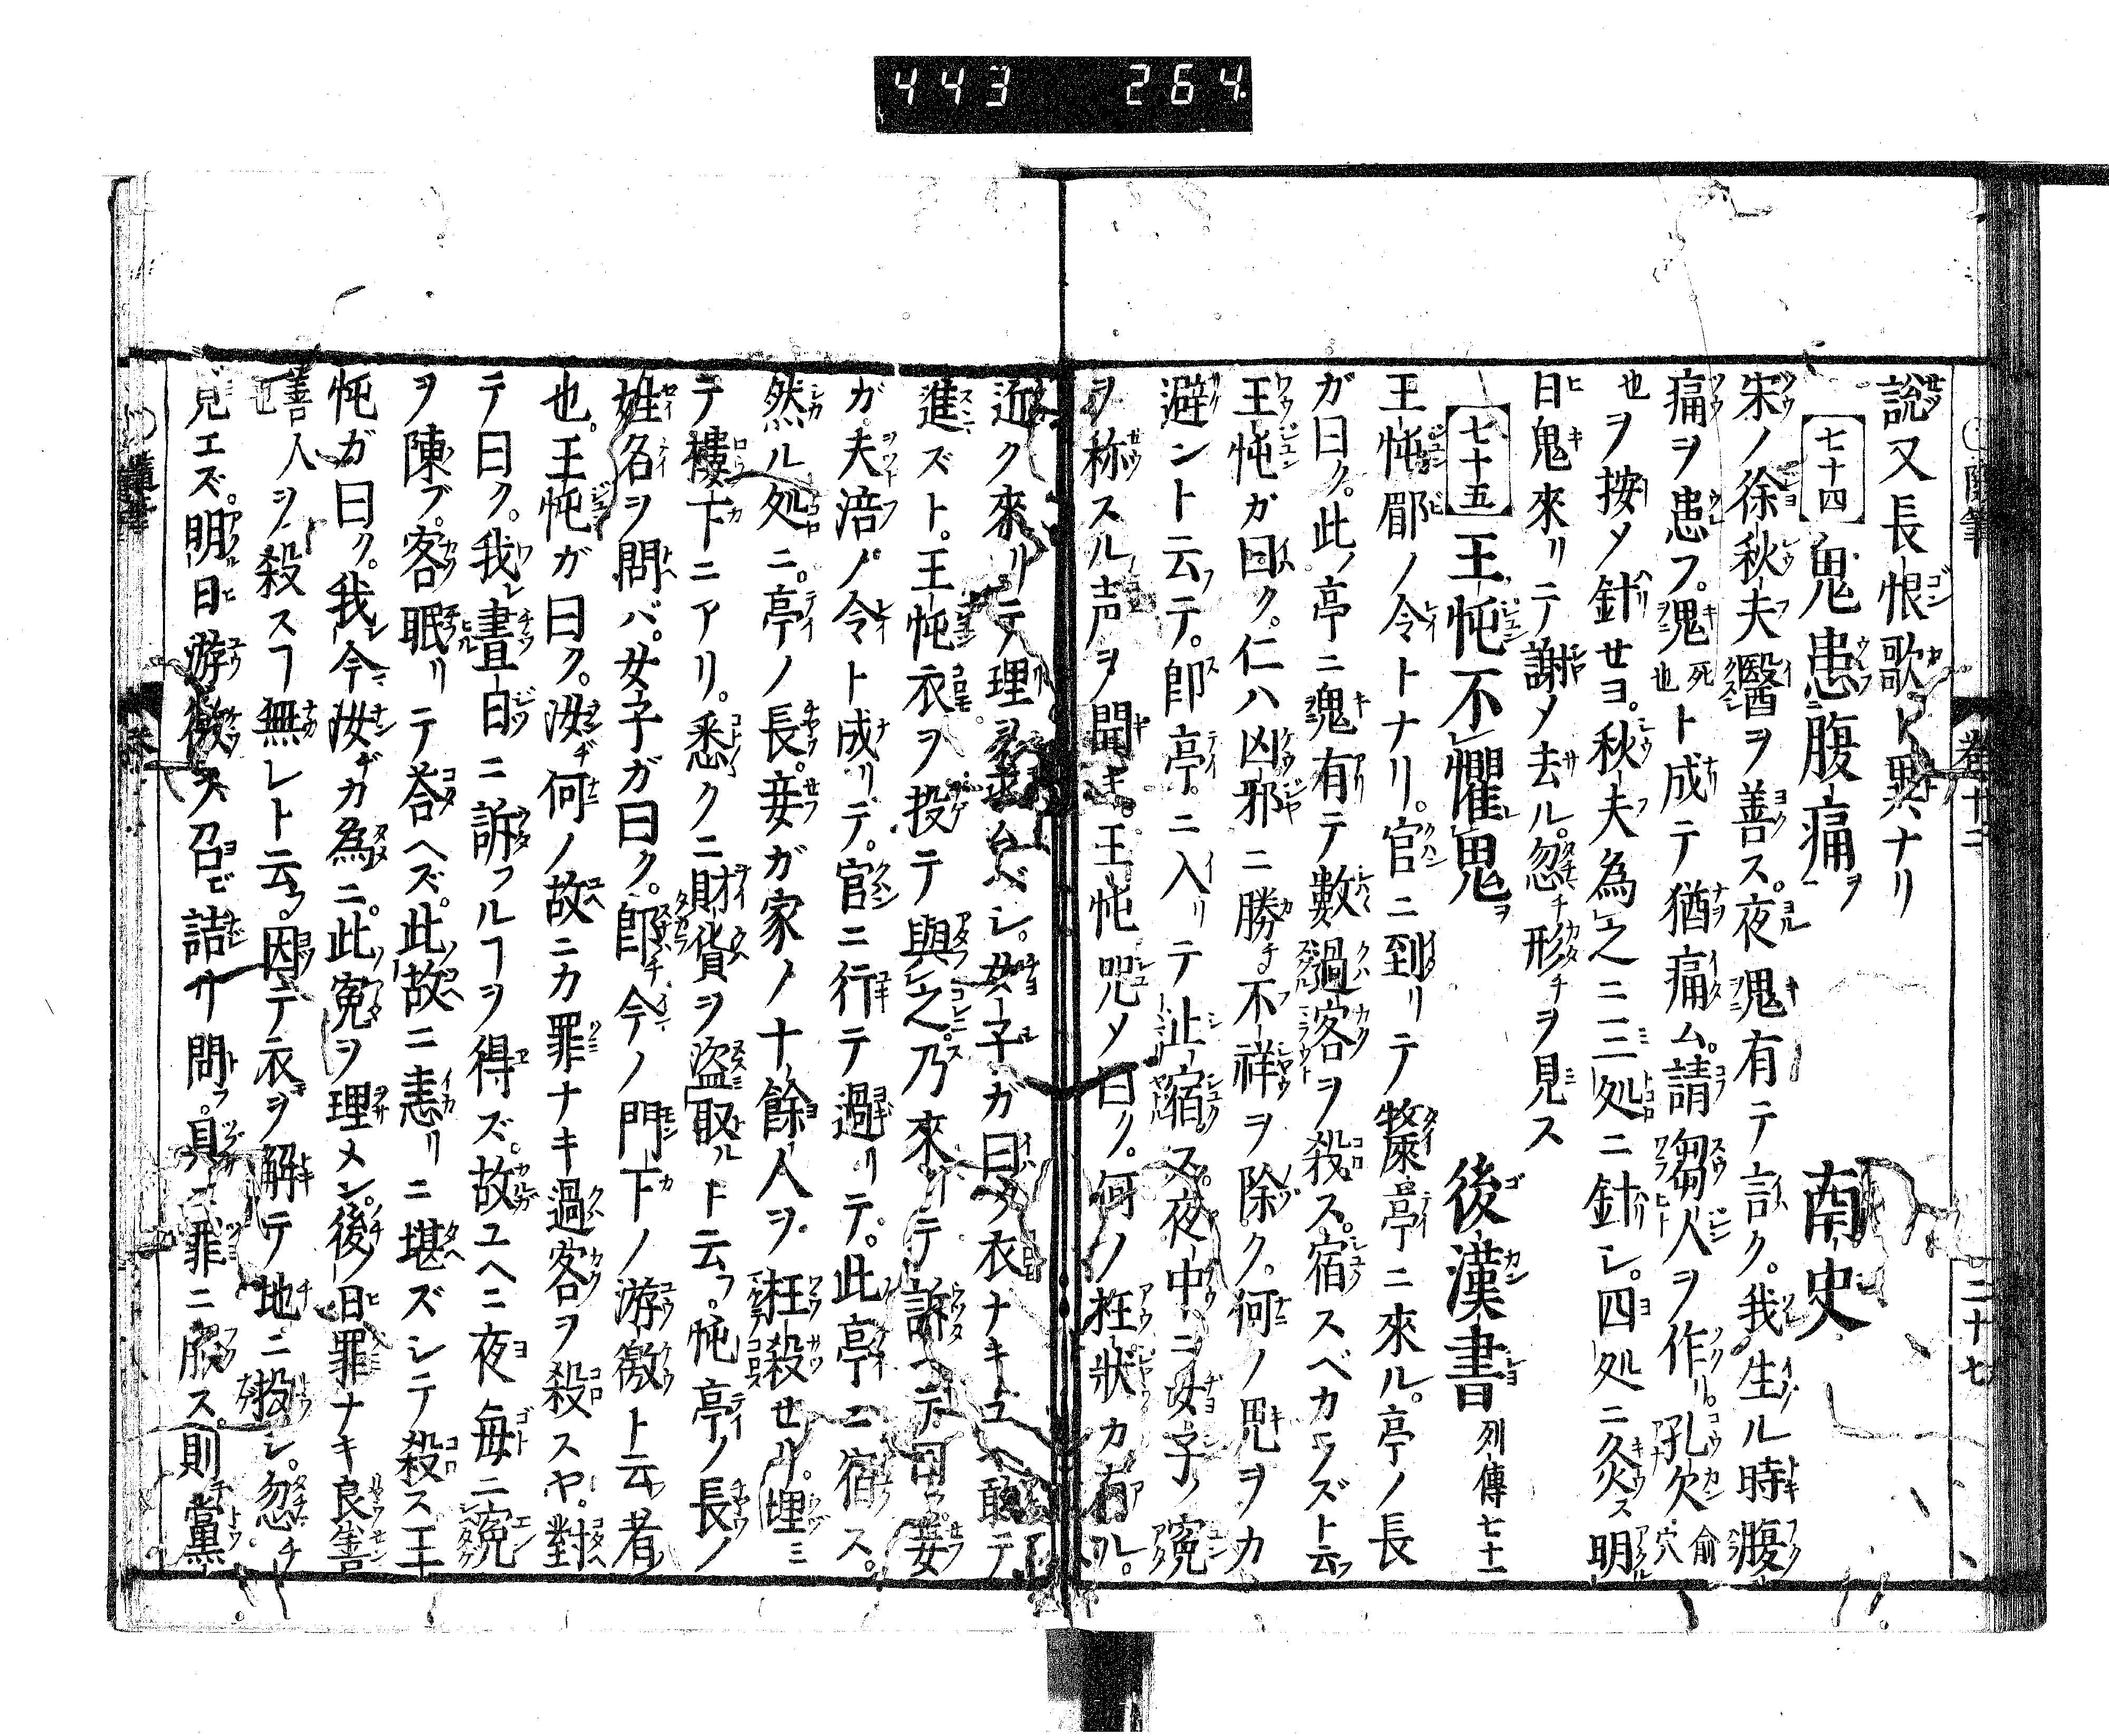 443 264
説又長恨歌ト異ナリ
七十四 鬼患腹痛ヲ 南史
宋ノ徐秋夫醫ヲ善ス。夜鬼有テ言ク。我生ル時腹
痛ヲ患フ。鬼死也ト成テ猶痛ム。請芻人ヲ作リ。孔穴兪穴
也ヲ按メ針セヨ。秋夫為之ニ三処ニ針シ。四処ニ灸ス明
日鬼來リテ謝メ去ル。忽チ形チヲ見ス
七十五 王忳不懼鬼ヲ 後漢書 列傳七十一
王忳郿ノ令トナリ。官ニ到リテ斄亭ニ來ル。亭ノ長
ガ曰ク。此ノ亭ニ鬼有テ數過客ヲ殺ス。宿スベカラズト云フ
王忳ガ曰ク。仁ハ凶邪ニ勝チ。不祥ヲ除ク。何ノ鬼ヲカ
避ント云テ。即亭ニ入リテ止宿ス夜中ニ女子ノ寃
ヲ称スル声ヲ聞キ。王忳咒メ曰ク。何ノ枉狀カ有ル。
近ク來リテ理ヲ乞ベシ。女子ガ曰ク衣ナキユヘ敢テ
進ズト。王忳衣ヲ投テ與之。乃來リテ訴ヘテ曰ク妾
ガ夫涪ノ令ト成リテ。官ニ行テ過リテ。此亭ニ宿ス。
然ル処ニ。亭ノ長。妾ガ家ノ十餘人ヲ枉殺セリ。埋ミ
テ樓下ニアリ。悉クニ財貨ヲ盜取ルト云フ。忳亭ノ長ノ
姓名ヲ問バ。女子ガ曰ク。即チ今ノ門下ノ游徼ト云者
也。王忳ガ曰ク。汝ヂ何ノ故ニカ罪ナキ過客ヲ殺スヤ。對
テ曰ク。我レ晝白ニ訴フルヿヲ得ズ。故ユヘニ夜毎ニ寃
ヲ陳ブ。客眠リテ荅ヘズ。此故ニ恚リニ堪ズシテ殺ス王
忳ガ曰ク。我レ今汝ヂガ為ニ。此寃ヲ理メン。後ノ日罪ナキ良善
善也人ヲ殺スヿ無レト云フ。因テ衣ヲ解テ地ニ投シ。忽チ
見エズ。明日游徼ヲ召ビ詰リ問フ。具ニ罪ニ服ス。則黨